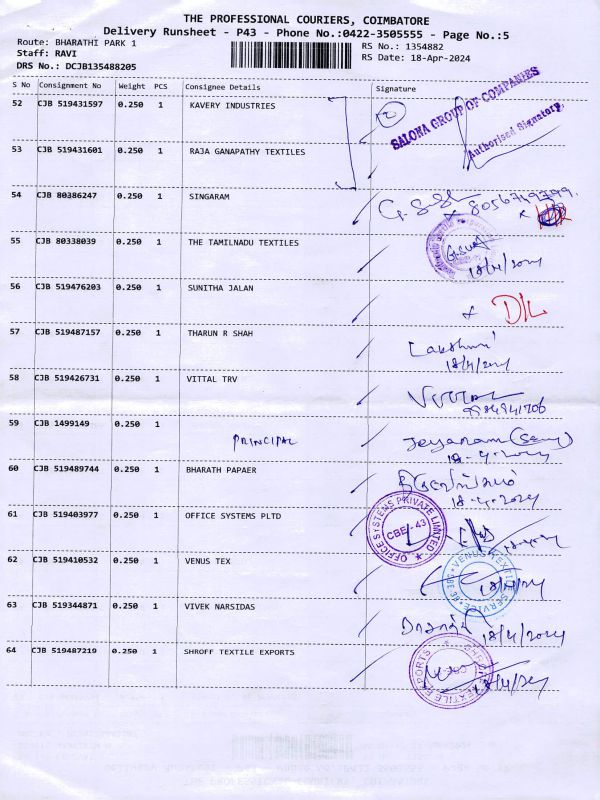 THE PROFESSIONAL COURIERS, COIMBATORE
Delivery Runsheet - P43 - Phone No.:0422-3505555 - Page No.:5
Route: BHARATHI PARK 1
Staff: RAVI
DRS No.: DCJB135488205
RS No.: 1354882
RS Date: 18-Apr-2024
S No Consignment No Weight PCS Consignee Details Signature
52 CJB 519431597 0.250 1 KAVERY INDUSTRIES
SALONA GROUP OF COMPANIES
Authorised Signatory
53 CJB 519431601 0.250 1 RAJA GANAPATHY TEXTILES
54 CJB 80386247 0.250 1 SINGARAM
8056749799
55 CJB 80338039 0.250 1 THE TAMILNADU TEXTILES
18/4/2024
56 CJB 519476203 0.250 1 SUNITHA JALAN
D/L
57 CJB 519487157 0.250 1 THARUN R SHAH
Lakshmi
18/4/2024
58 CJB 519426731 0.250 1 VITTAL TRV
VITTAL
59 CJB 1499149 0.250 1
PRINCIPAL
Jeyaram
18-4-2024
60 CJB 519489744 0.250 1 BHARATH PAPAER
18-4-2024
61 CJB 519403977 0.250 1 OFFICE SYSTEMS PLTD
OFFICE SYSTEMS PRIVATE LIMITED
CBE-43
62 CJB 519410532 0.250 1 VENUS TEX
VENUS TEXTILE SERVICE
18/4/24
63 CJB 519344871 0.250 1 VIVEK NARSIDAS
18/4/2024
64 CJB 519487219 0.250 1 SHROFF TEXTILE EXPORTS
18/4/24